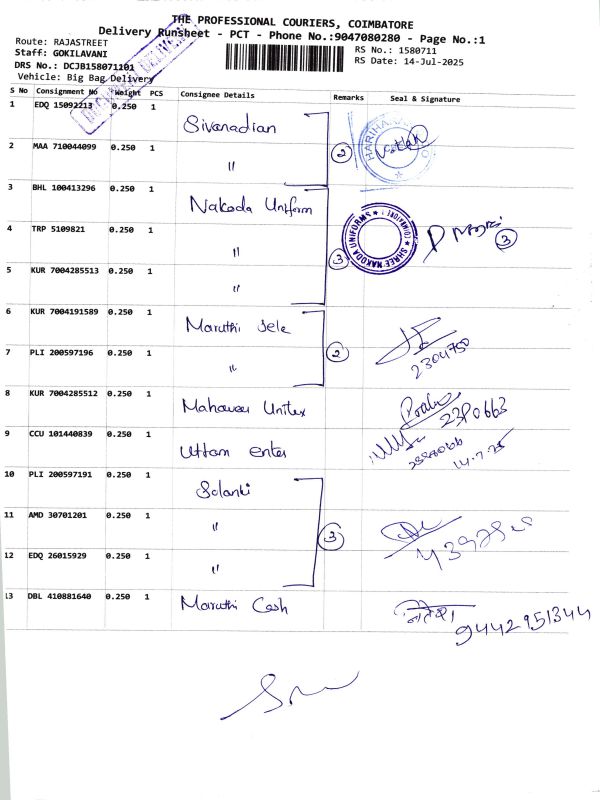 THE PROFESSIONAL COURIERS, COIMBATORE
Delivery Runsheet - PCT - Phone No.:9047080280 - Page No.:1
Route: RAJASTREET
Staff: GOKILAVANI
DRS No.: DCJB158071101
Vehicle: Big Bag Delivery
RS No.: 1580711
RS Date: 14-Jul-2025
S No Consignment No Weight PCS Consignee Details Remarks Seal & Signature
1 EDQ 15092213 0.250 1 Sivanadian
2 MAA 710044099 0.250 1 " 2
3 BHL 100413296 0.250 1 Nakoda Uniform
SHREE NAKODA UNIFORMS
4 TRP 5109821 0.250 1 " 3 3
5 KUR 7004285513 0.250 1 "
6 KUR 7004191589 0.250 1 Maruthi Sele
7 PLI 200597196 0.250 1 " 2 2304750
8 KUR 7004285512 0.250 1 Mahaveer Unitex 2380663
9 CCU 101440839 0.250 1 Uttam enter 14.7.25
10 PLI 200597191 0.250 1 Solanki
11 AMD 30701201 0.250 1 " 3
12 EDQ 26015929 0.250 1 "
13 DBL 410881640 0.250 1 Maruthi Cash 9442951344